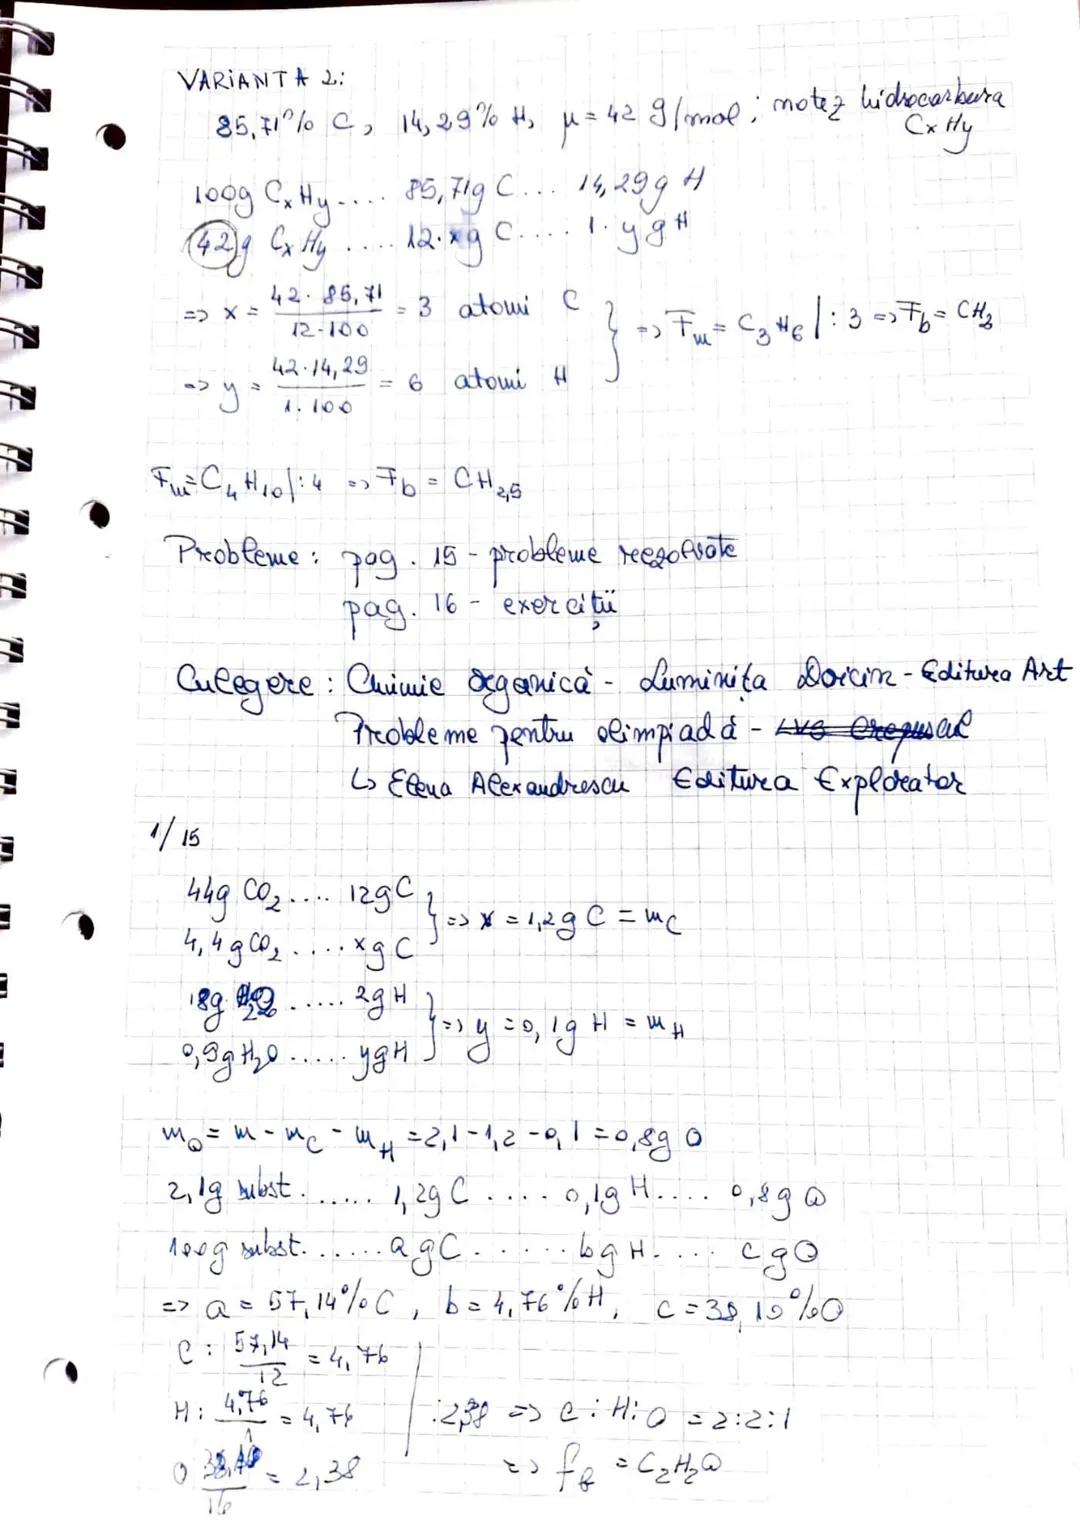 VARIANTA 2:
85,71% C, 14,29% H, μ = 42 g/mol ; notez hidrocarbura
CxHy
100g CxHy .... 85,71g C ... 14,29g H
42g CxHy .... 12·xg C .... 1·y g H
=> x = 42·85,71 / 12·100 = 3 atomi C
=> Fm = C3H6 |:3 => Fb = CH2
=> y = 42·14,29 / 1·100 = 6 atomi H
Fm = C4H10 |:4 => Fb = CH2,5
Probleme : pag. 15 - probleme rezolvate
pag. 16 - exerciții
Culegere : Chimie organică - Luminița Doicin - Editura Art
Probleme pentru olimpiadă -
↳ Elena Alexandrescu Editura Explorator
1/15
44g CO2 .... 12g C
4,4g CO2 .... xg C
=> x = 1,2g C = mC
18g H2O ..... 2g H
0,9g H2O ..... yg H
=> y = 0,1g H = mH
mO = m - mC - mH = 2,1 - 1,2 - 0,1 = 0,8g O
2,1g subst. ..... 1,2g C .... 0,1g H .... 0,8g O
100g subst. ..... a g C ...... b g H .... c g O
=> a = 57,14% C, b = 4,76% H, c = 38,10% O
C : 57,14 / 12 = 4,76
H : 4,76 / 1 = 4,76 | :2,38 => C : H : O = 2:2:1
O 38,10 / 16 = 2,38 => fb = C2H2O